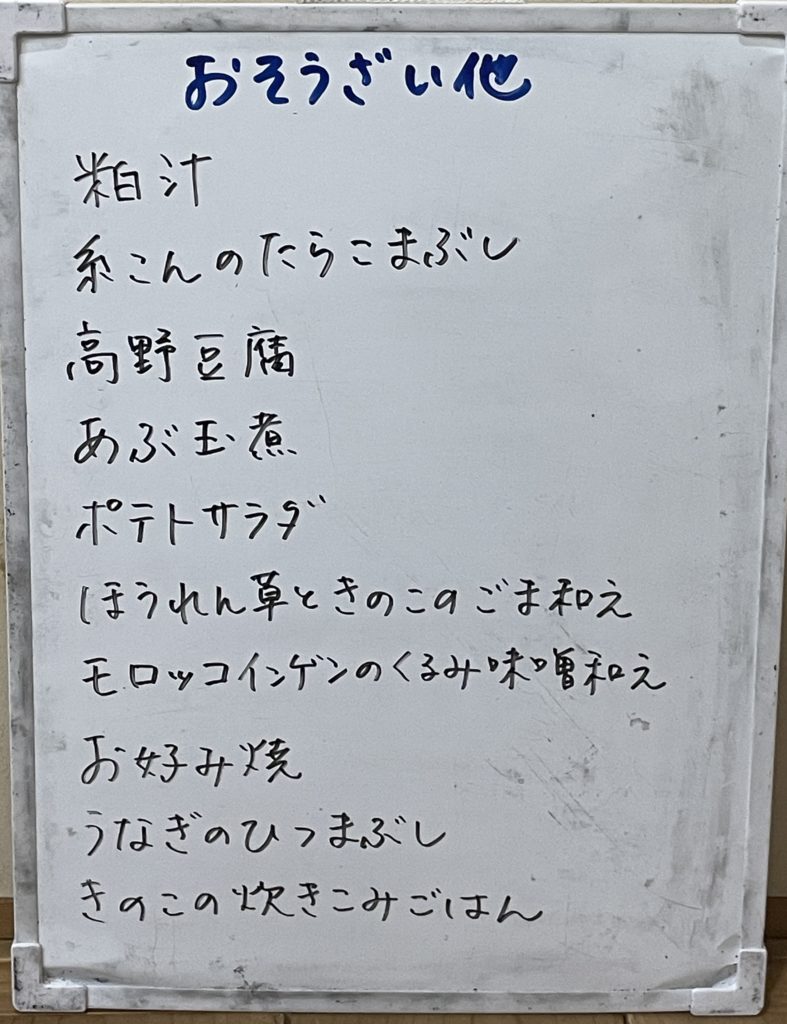 おそうざい他
粕汁
糸こんのたらこまぶし
高野豆腐
あぶ玉煮
ポテトサラダ
ほうれん草ときのこのごま和え
モロッコインゲンのくるみ味噌和え
お好み焼
うなぎのひつまぶし
きのこの炊きこみごはん